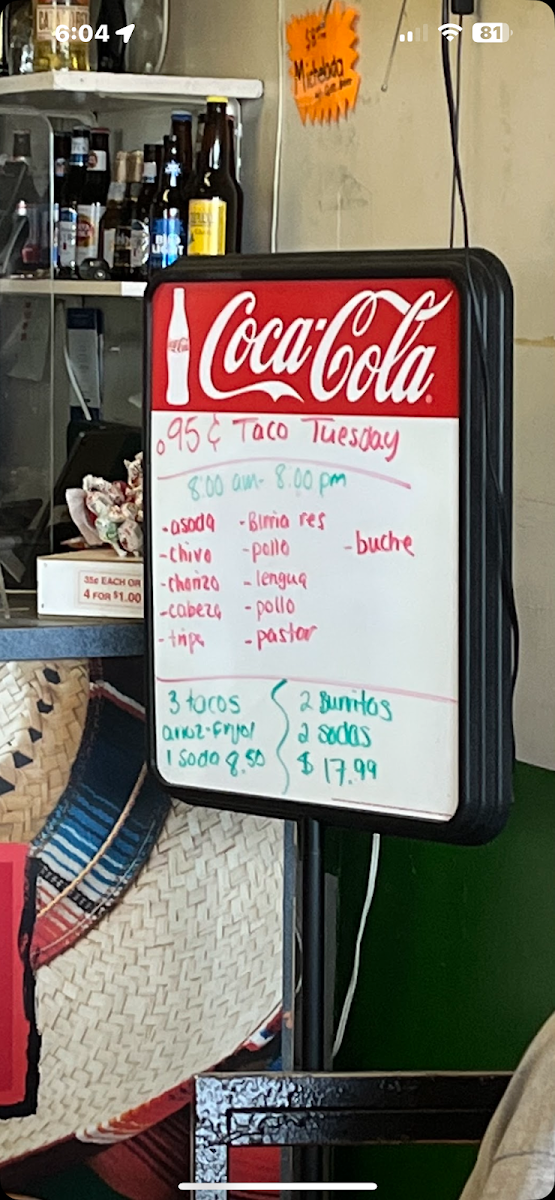 6:04
81
Michelada
BUD
LIGHT
Coca-Cola
.95¢ Taco Tuesday
8:00 am- 8:00 pm
-asada -Birria res
-chivo -pollo -buche
-chorizo -lengua
-cabeza -pollo
-tripa -pastor
35¢ EACH OR
4 FOR $1.00
3 tacos
arroz-frijol
1 Soda 8.50
2 Burritos
2 sodas
$ 17.99